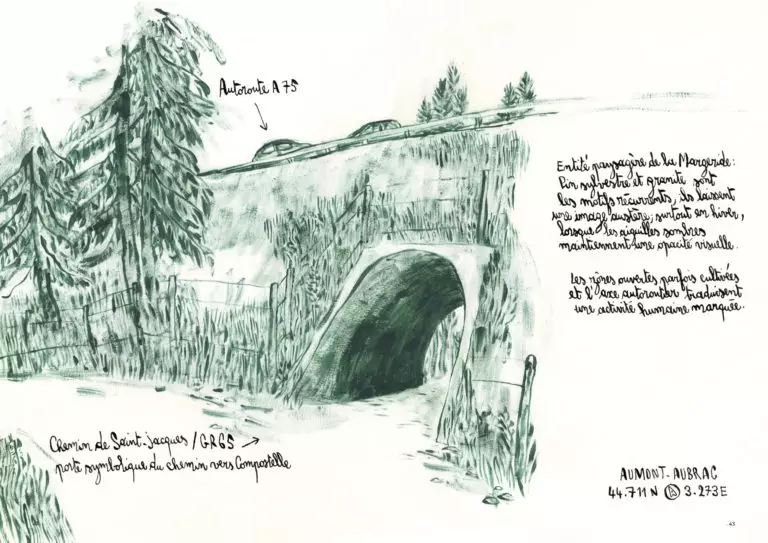 Autoroute A75
Entité paysagère de la Margeride:
Pin sylvestre et granite sont
les motifs récurrents, ils laissent
une image austère, surtout en hiver,
lorsque les aiguilles sombres
maintiennent une opacité visuelle.
Les rères ouvertes parfois cultivées
et l'axe autoroutier traduisent
une activité humaine marquée.
Chemin de Saint-Jacques / GR65
porte symbolique du chemin vers Compostelle
AUMONT-AUBRAC
44.711 N A 3.273 E
43